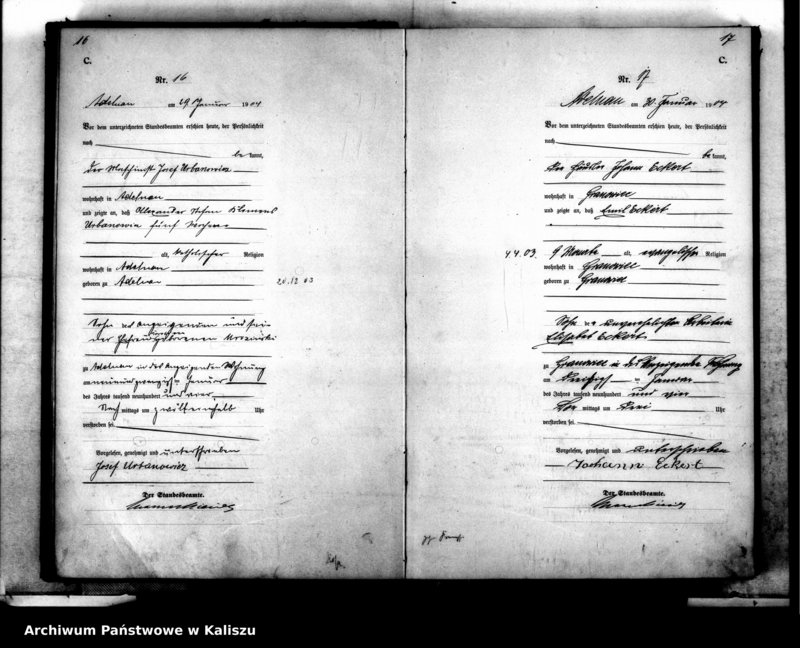 16
C.
Nr. 16
Adelnau am 29 Januar 1904
Vor dem unterzeichneten Standesbeamten erschien heute, der Persönlichkeit
nach
be kannt,
der Maschinist Josef Urbanowicz
wohnhaft in Adelnau
und zeigte an, daß Alexander Stefan Klemens
Urbanowicz fünf Wochen
alt, katholischer Religion
wohnhaft in Adelnau
geboren zu Adelnau
24.12 03
Sohn des Anzeigenden und sei-
ner Ehefrau geborenen
zu Adelnau in des Anzeigenden Wohnung
am neunundzwanzigsten Januar
des Jahres tausend neunhundert und vier
Nach mittags um zwölfeinhalb Uhr
verstorben sei.
Vorgelesen, genehmigt und unterschrieben
Josef Urbanowicz
Der Standesbeamte.
17
C.
Nr. 17
Adelnau am 30. Januar 1904
Vor dem unterzeichneten Standesbeamten erschien heute, der Persönlichkeit
nach
be kannt,
der Häusler Johann Eckert
wohnhaft in Granowiec
und zeigte an, daß Emil Eckert
4 4. 03.
9 Monate alt, evangelischer Religion
wohnhaft in Granowiec
geboren zu Granowiec
Sohn der unverehelichten Arbeiterin
Elisabet Eckert
zu Granowiec in des Anzeigenden Wohnung
am dreißigsten Januar
des Jahres tausend neunhundert und vier
Vor mittags um drei Uhr
verstorben sei.
Vorgelesen, genehmigt und unterschrieben
Johann Eckert
Der Standesbeamte.
Archiwum Państwowe w Kaliszu